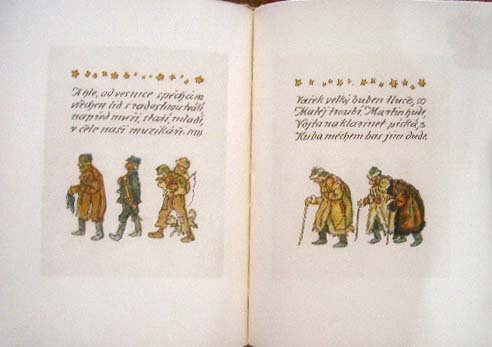 A hle, od vesnice spěchá
všechen lid s radostnou tváří
napřed muži, staří, mladí,
v čele naši muzikáři.
Vašek velký buben tluče,
Matěj troubí, Martin hude,
Vojta na klarinet píská,
Kuba měchem bas jim dudá.